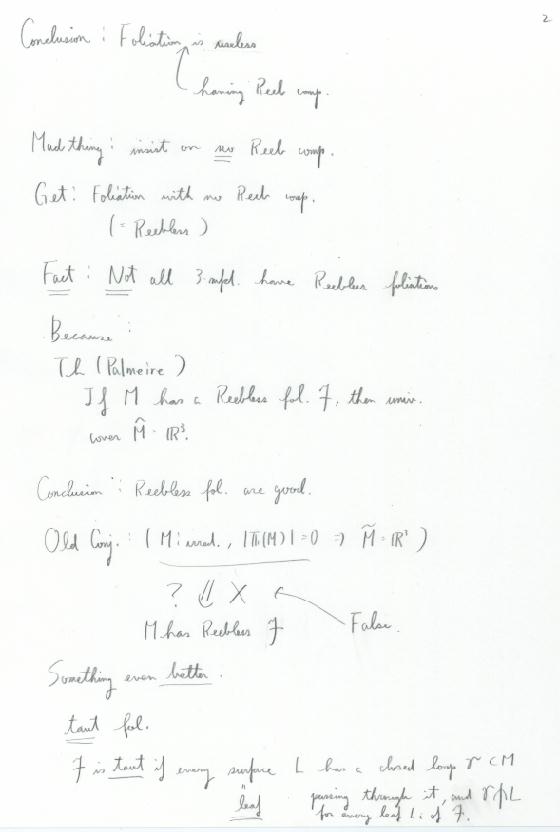 2
Conclusion : Foliation is useless
having Reeb comp.
Mad thing : insist on no Reeb comp.
Get : Foliation with no Reeb comp.
( = Reebless )
Fact : Not all 3-mfd. have Reebless foliations
Because :
Th (Palmeire )
If M has a Reebless fol. F, then univ.
cover M̃ = ℝ³.
Conclusion : Reebless fol. are good.
Old Conj. : ( M : irred. , |π₁(M)| = ∞ ⇒ M̃ = ℝ³ )
? ⇓ X
M has Reebless F
False.
Something even better.
taut fol.
F is taut if every surface L has a closed loop γ ⊂ M
" leaf
passing through it, and γ ⋔ L
for every leaf L of F.